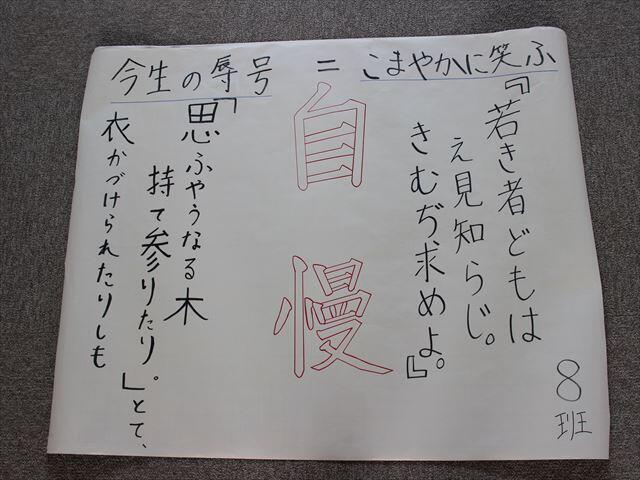 今生の辱号 = こまやかに笑ふ
『若き者どもは
え見知らじ。
きむぢ求めよ。』
自慢
「思ふやうなる木
持て参りたり。」とて、
衣かづけられたりしも
8班